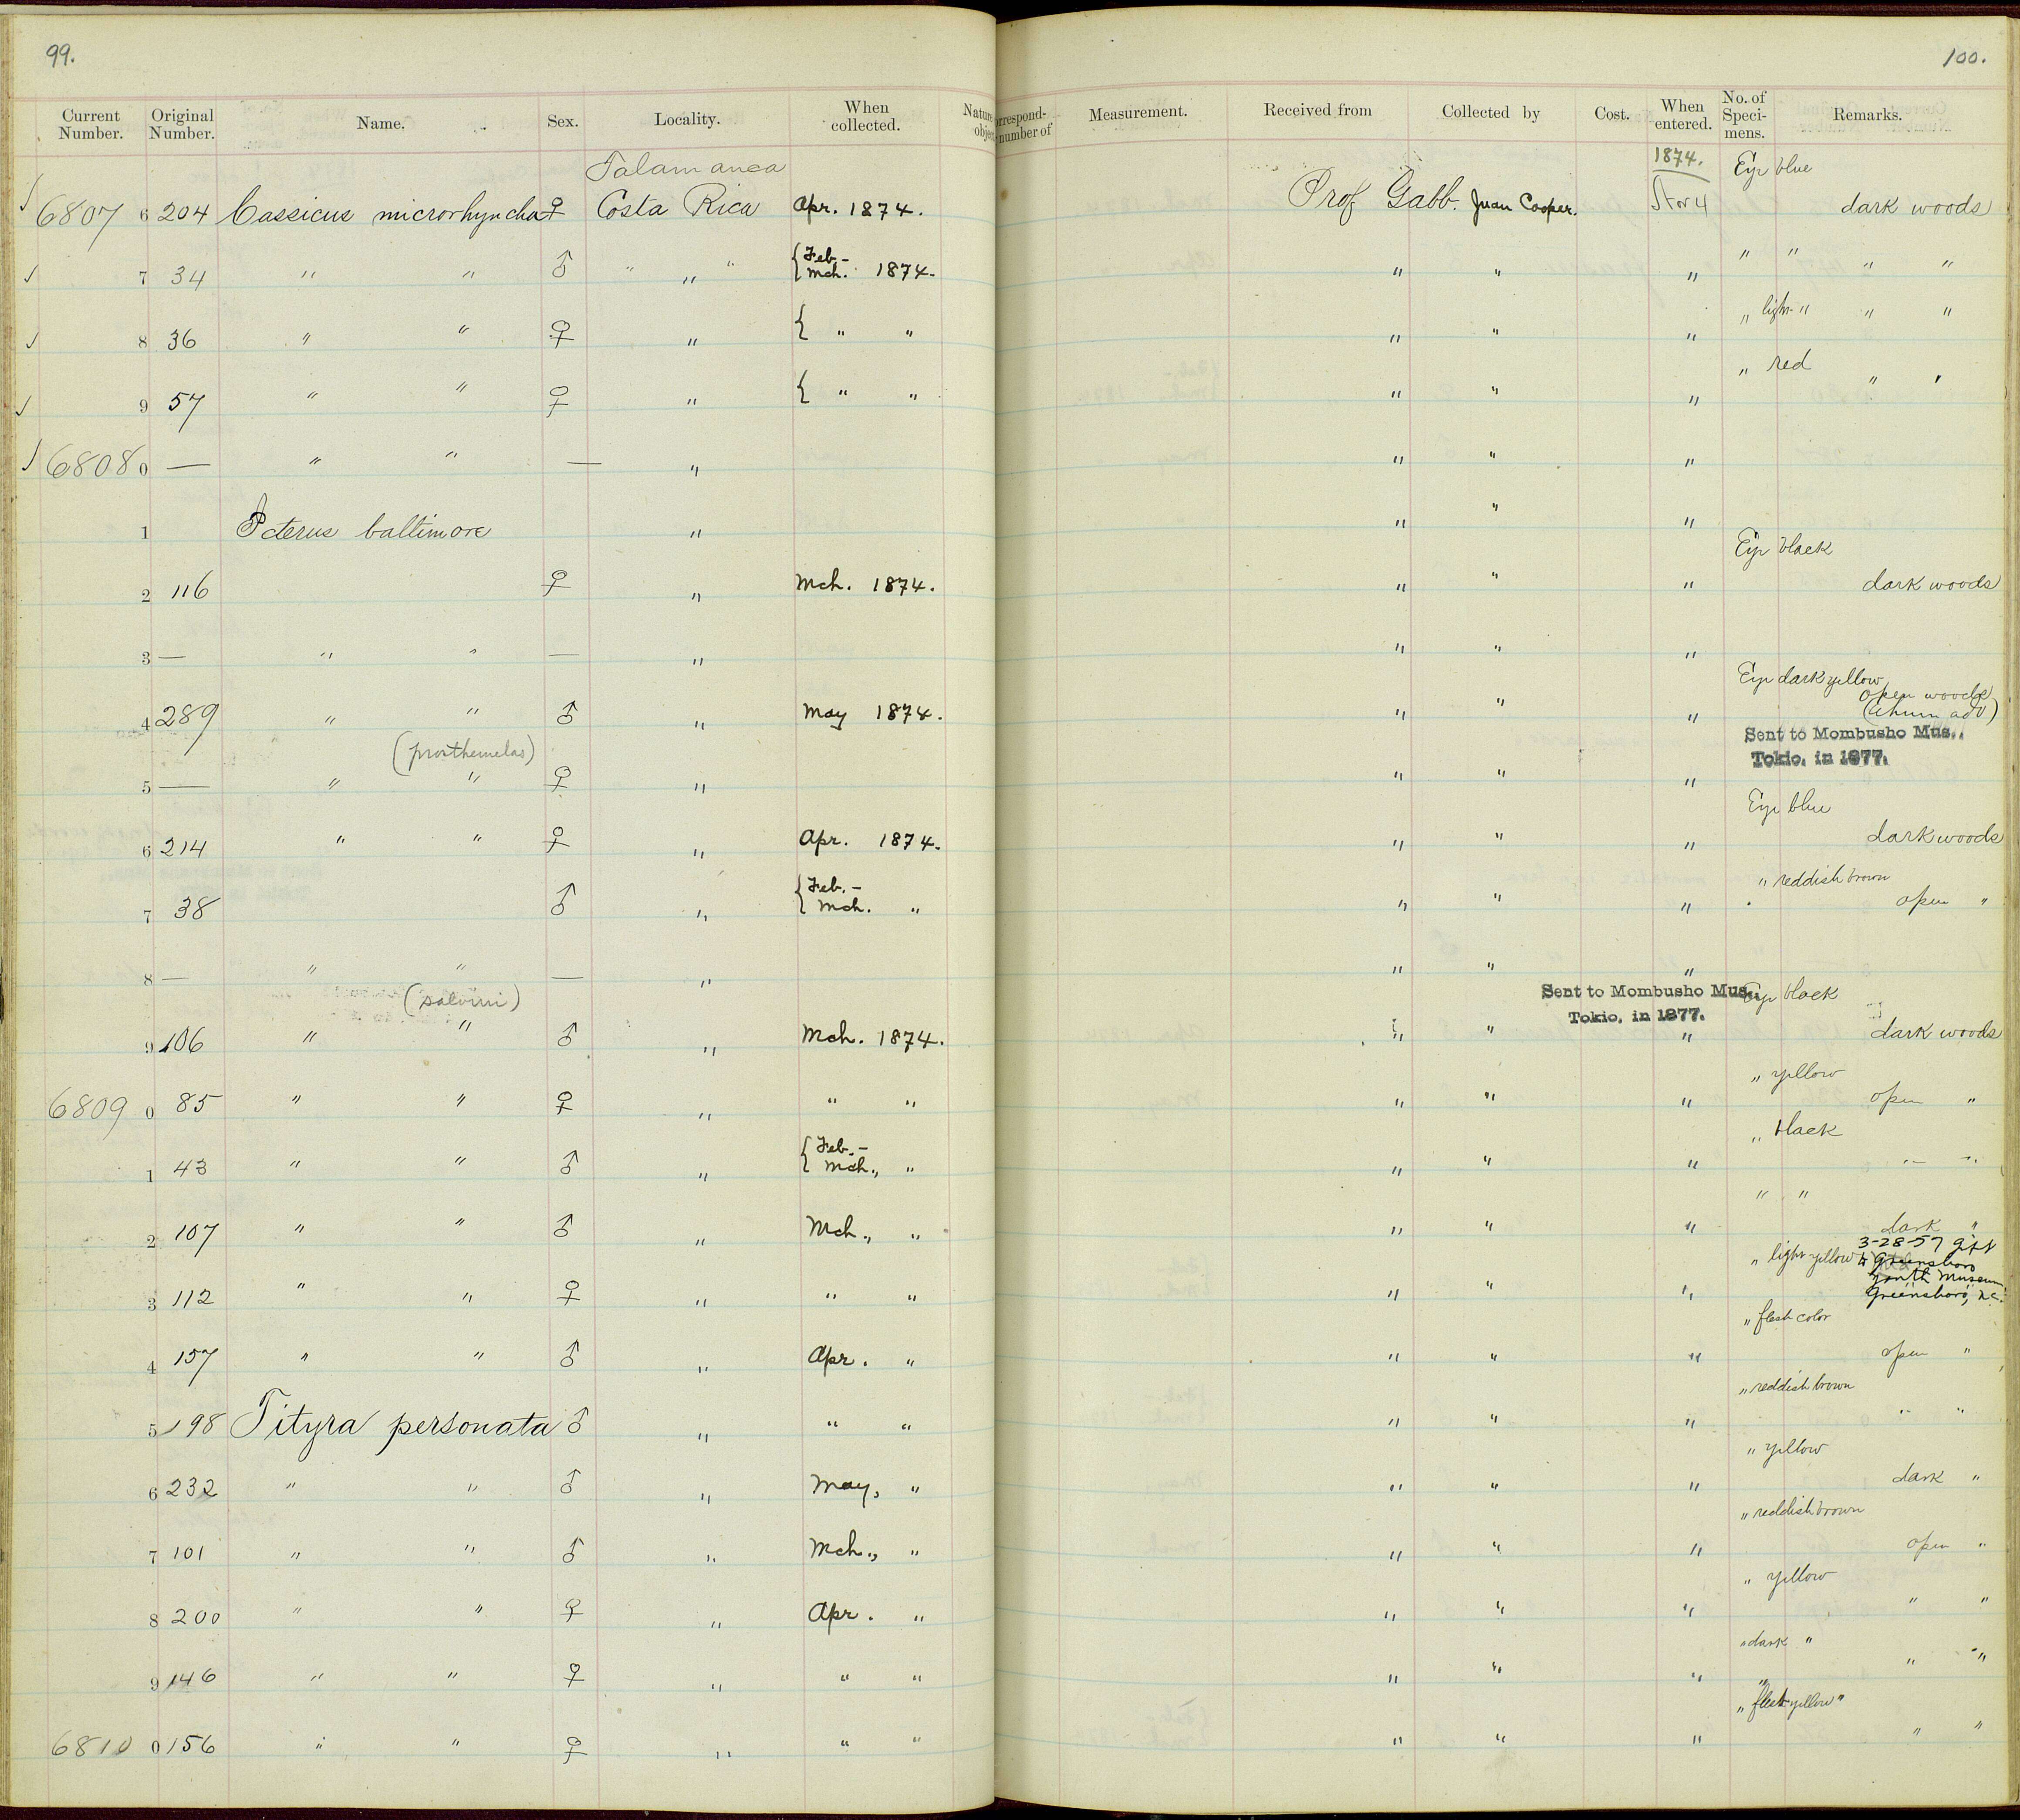 99.
100.
Current Number. Original Number. Name. Sex. Locality. When collected. Nature objec
orrespond- number of Measurement. Received from Collected by Cost. When entered. No. of Speci- mens. Remarks.
Talamanca
1874.
Eye blue
6807 6 204 Cassicus microrhyncha ♀ Costa Rica Apr. 1874. Prof Gabb. Juan Cooper. dark woods
7 34 " " ♂ " " " { Feb.- Mch. 1874. " " " " " " "
" light "
8 36 " " ♀ " { " " " " " " "
" red
9 57 " " ♀ " { " " " " " " "
6808 0 — " " — " " " "
1 Icterus baltimore " " " "
Eye black
2 116 ♀ " Mch. 1874. " " " dark woods
3 — " " — " " " "
Eye dark yellow
open woods
4 289 " " ♂ " May 1874. " " "
Sent to Mombusho Mus., Tokio, in 1877.
(prosthemelas)
5 — " " ♀ " " " "
Eye blue
6 214 " " ♀ " Apr. 1874. " " " dark woods
" reddish brown
7 38 ♂ " { Feb.- Mch. " " " " open "
8 — " " — " " " "
Sent to Mombusho Mus., Tokio, in 1877.
Eye black
(salvini)
9 106 " " ♂ " Mch. 1874. " " " dark woods
" yellow
6809 0 85 " " ♀ " " " " " " open "
" black
1 43 " " ♂ " { Feb.- Mch., " " " " " "
" "
2 107 " " ♂ " Mch., " " " " dark "
3-28-57 gift
" light yellow to Greensboro
Youth Museum
Greensboro, N.C.
3 112 " " ♀ " " " " " "
" flesh color
4 157 " " ♂ " Apr. " " " " open "
" reddish brown
5 198 Tityra personata ♂ " " " " " " " "
" yellow
6 232 " " ♂ " May, " " " " dark "
" reddish brown
7 101 " " ♂ " Mch., " " " " open "
" yellow
8 200 " " ♀ " Apr. " " " " " "
" dark "
9 146 " " ♀ " " " " " " " "
" flesh yellow "
6810 0 156 " " ♀ " " " " " " " "